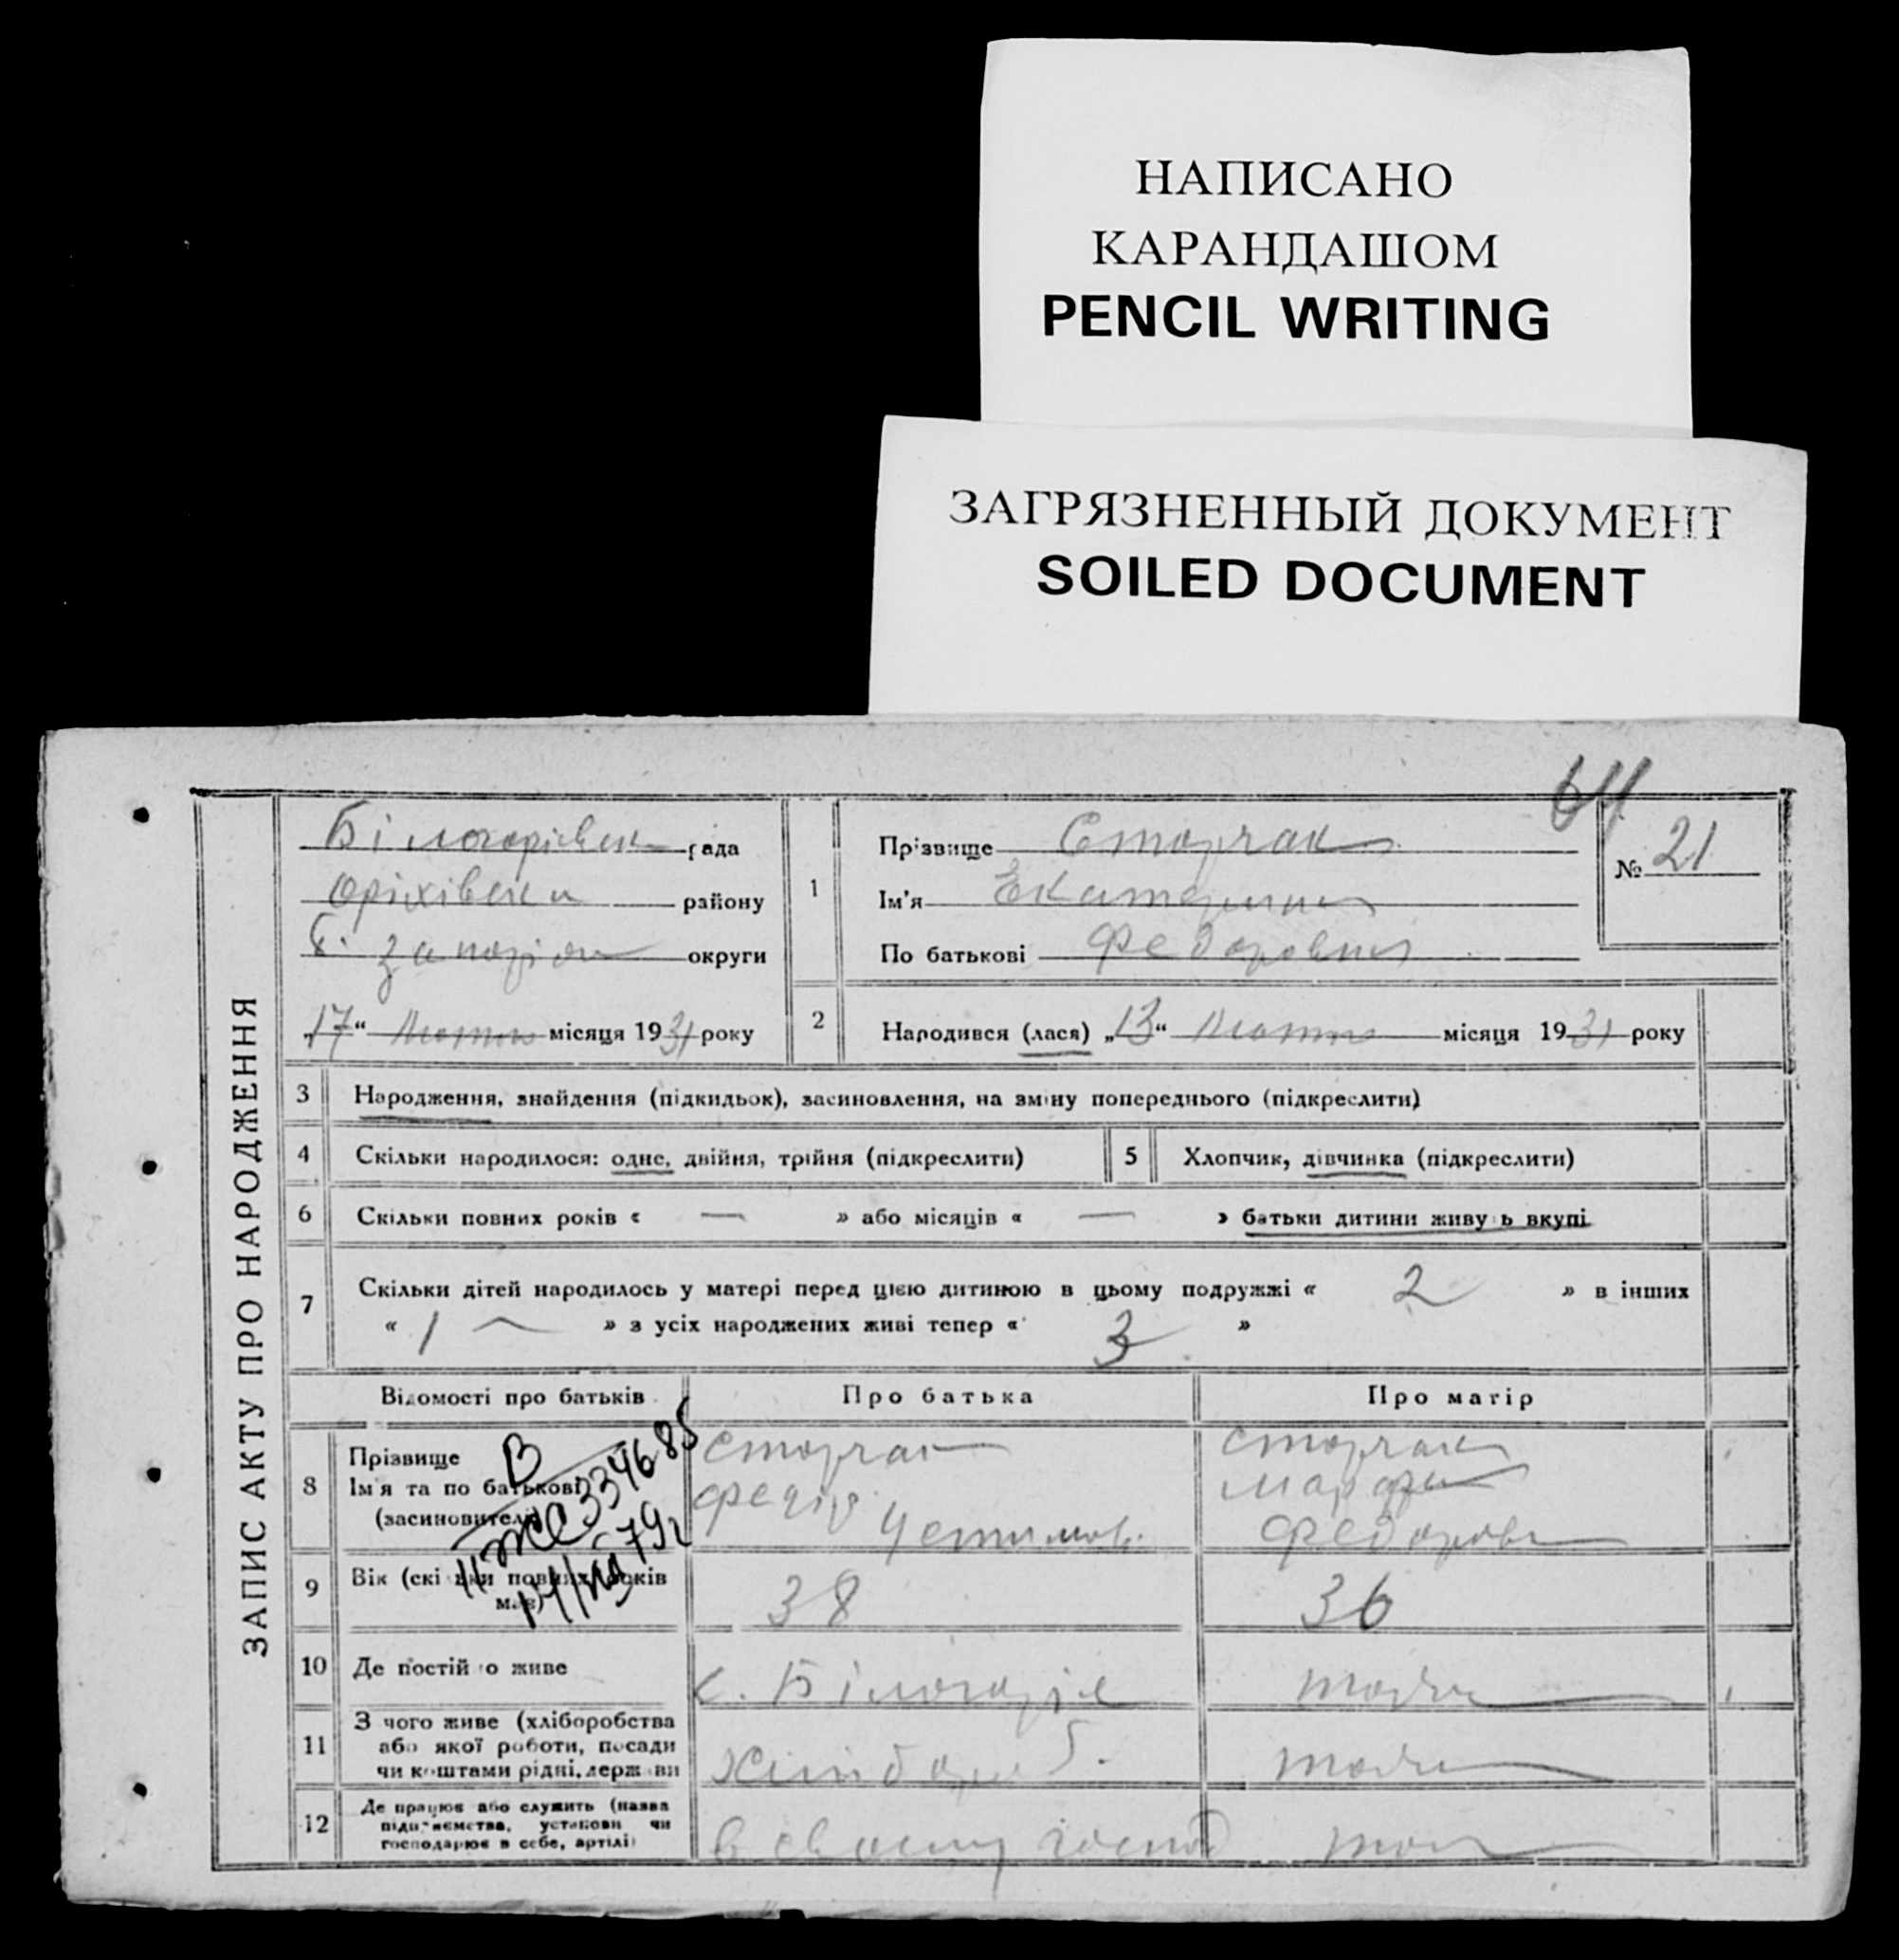 НАПИСАНО
КАРАНДАШОМ
PENCIL WRITING
ЗАГРЯЗНЕННЫЙ ДОКУМЕНТ
SOILED DOCUMENT
ЗАПИС АКТУ ПРО НАРОДЖЕННЯ
рада
району
округи
„17“ місяця 1931 року
1
Прізвище Сторчак
Ім'я Екатерина
По батькові Федоровна
№ 21
2 Народився (лася) „13“ місяця 1931 року
3 Народження, знайдення (підкидьок), засиновлення, на зміну попереднього (підкреслити)
4 Скільки народилося: одне, двійня, трійня (підкреслити) 5 Хлопчик, дівчинка (підкреслити)
6 Скільки повних років « — » або місяців « — » батьки дитини живуть вкупі
7 Скільки дітей народилось у матері перед цією дитиною в цьому подружжі « 2 » в інших
« 1 » з усіх народжених живі тепер « 3 »
Відомості про батьків Про батька Про матір
8 Прізвище Сторчак Сторчак
Ім'я та по батькові Федір Марфа
(засиновителі) Устимов.
9 Вік (скільки повних років має) 38 36
10 Де постійно живе с. Білогорʼє
11 З чого живе (хліборобства
або якої роботи, посади
чи коштами рідні, держави
12 Де працює або служить (назва
підприємства, установи чи
господарює в себе, артілі) в своему господ